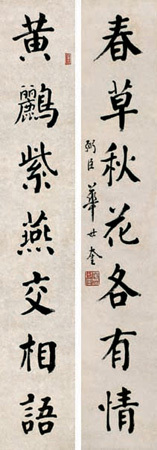 春草秋花各有情
弼臣華世奎
黃鸝紫燕交相語